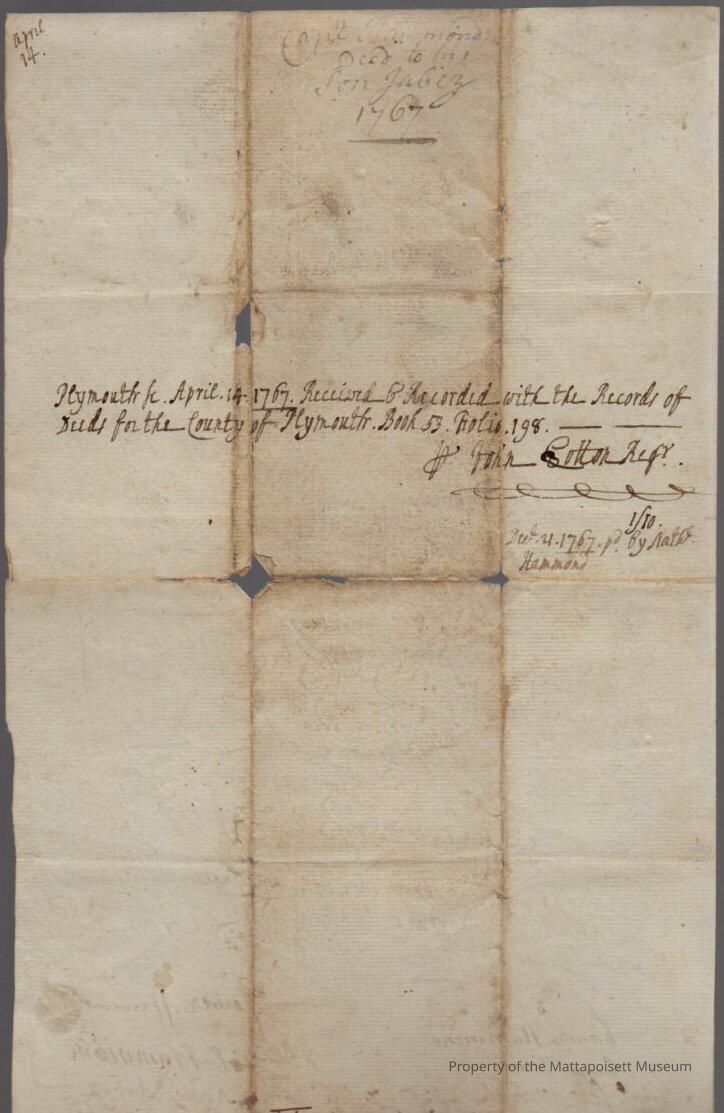 April
14.
Capt Hammond
Deed to his
Son Jabez
1767
Plymouth ſc. April. 14. 1767. Received & Recorded with the Records of
Deeds for the County of Plymouth. Book 53. Folio. 198.
John Cotton Regr.
1/10.
Decr. 21. 1767. pd. by Nathl.
Hammond
Property of the Mattapoisett Museum